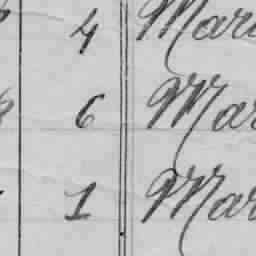 4 Mar
6 Mar
1 Mar